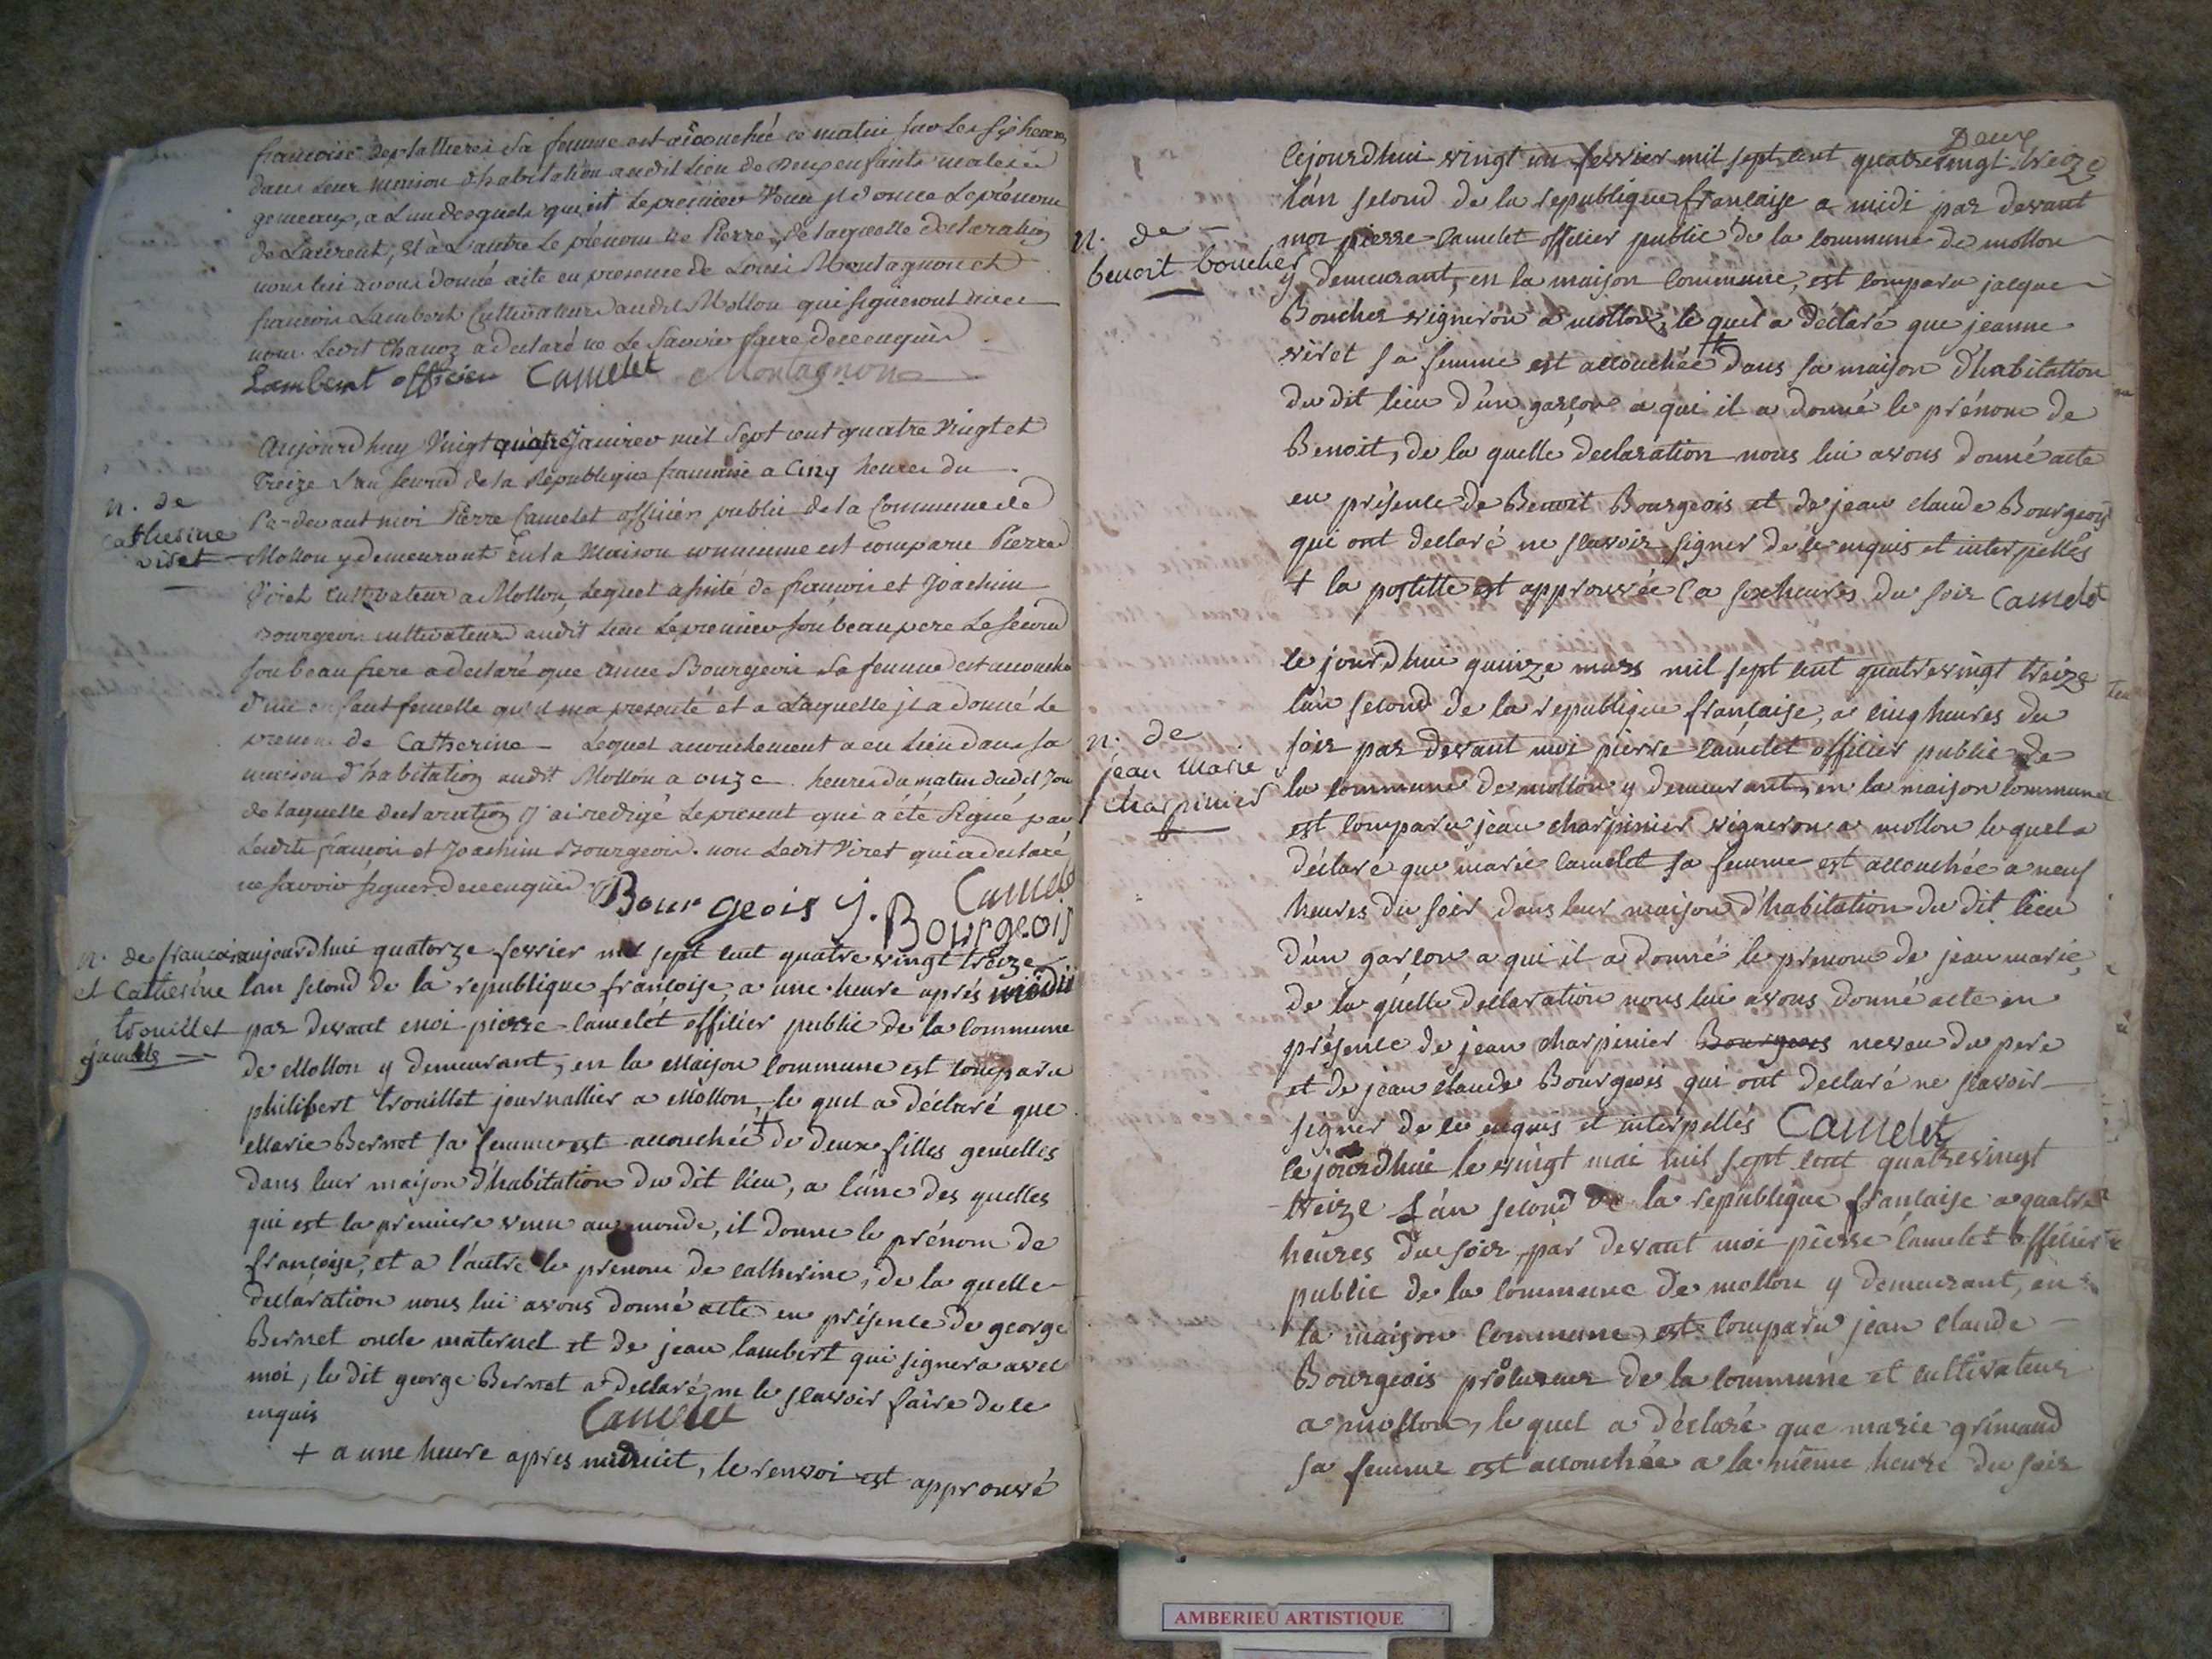 françoise desplattieres sa femme est accouchée ce matin sur les six heures
dans leur maison d'habitation audit lieu de deux enfants males
gemeaux, a l'un desquels qui est le premier venu jl donne le prénom
de Laurent, et à l'autre le prénom de Pierre, de laquelle declaration
nous lui avons donné acte en presence de Louis Montagnon et
françois Lambert Cultivateurs audit Mollon qui signeront avec
nous. Ledit Chanoz a declaré ne le savoir faire de ce enquis
Lambert officier Camelet Montagnon
n. de
catherine
viret
Aujourd'huy Vingt quatre Janvier mil sept cent quatre Vingt et
Treize L'an second de la République francaise a Cinq heures du
Par devant moi Pierre Camelet officier public de la Commune de
Mollon y demeurant En la Maison commune est comparu Pierre
Viret cultivateur a Mollon, lequel assisté de françois et Joachim
Bourgeois cultivateurs audit lieu le premier son beau pere le second
son beau frere a declaré que Anne Bourgeois sa femme est accouchée
d'un enfant femelle qu'il ma presenté et a laquelle jl a donné le
prenom de Catherine - Lequel accouchement a eu lieu dans sa
maison d'habitation audit Mollon a onze heures du matin dudit Jour
de laquelle declaration j'ai redigé le present qui a été signé par
Lesdits françois et Joachim Bourgeois. non Ledit Viret qui a declaré
ne savoir signer de ce enquis
Bourgeois J. Bourgeois Camelet
n. de francoise
et Catherine
trouillet
jumels
aujourd'hui quatorze fevrier mil sept cent quatre vingt treize
lan second de la republique françoise, a une heure aprés midi
par devant moi pierre camelet officier public de la commune
de Mollon y demeurant, en la Maison commune est comparu
philibert trouillet journallier a Mollon, le quel a déclaré que
Marie Bernet sa femme est accouchée + de deux filles gemelles
dans leur maison d'habitation du dit lieu, a l'une des quelles
qui est la premiere venu au monde, il donne le prénom de
françoise, et a l'autre le prenom de catherine, de la quelle
declaration nous lui avons donné acte en présence de george
Bernet oncle maternel et de jean lambert qui signera avec
moi, le dit george Bernet a declaré ne le scavoir faire de ce
enquis Camelet
+ a une heure apres minuit, le renvoi est approuvé
Deux
n. de
benoit boucher
cejourdhui vingt un fevrier mil sept cent quatre vingt treize
l'an second de la republique française a midi par devant
moi pierre camelet officier public de la commune de mollon
y demeurant, en la maison commune, est comparu jacque
Boucher vigneron a mollon, le quel a déclaré que jeanne
viret sa femme est accouchée + dans sa maison d'habitation
du dit lieu d'un garçon a qui il a donné le prénom de
Benoit, de la quelle declaration nous lui avons donné acte
en présence de Benoit Bourgeois et de jean claude Bourgeois
qui ont declaré ne scavoir signer de ce enquis et interpellés
+ la postille est approuvée a six heures du soir Camelet
n. de
jean Marie
charpinier
le jourdhui quinze mars mil sept cent quatre vingt treize
l'an second de la republique française, a cinq heures du
soir par devant moi pierre camelet officier public de
la commune de mollon y demeurant, en la maison commune
est comparu jean charpinier vigneron a mollon le quel a
déclaré que marie camelet sa femme est accouchée a neuf
heures du soir dans leur maison d'habitation du dit lieu
d'un garçon a qui il a donné le prenom de jean marie,
de la quelle declaration nous lui avons donné acte en
présence de jean charpinier Bourgeois neveu du pere
et de jean claude Bourgeois qui ont declaré ne scavoir
signer de ce enquis et interpellés Camelet
le jourdhui le vingt mai mil sept cent quatre vingt
treize L'an second de la republique française a quatre
heures du soir, par devant moi pierre camelet officier
public de la commune de mollon y demeurant, en
la maison commune, est comparu jean claude
Bourgeois procureur de la commune et cultivateur
a mollon, le quel a déclaré que marie grimaud
sa femme est accouchée a la même heure du soir
AMBERIEU ARTISTIQUE